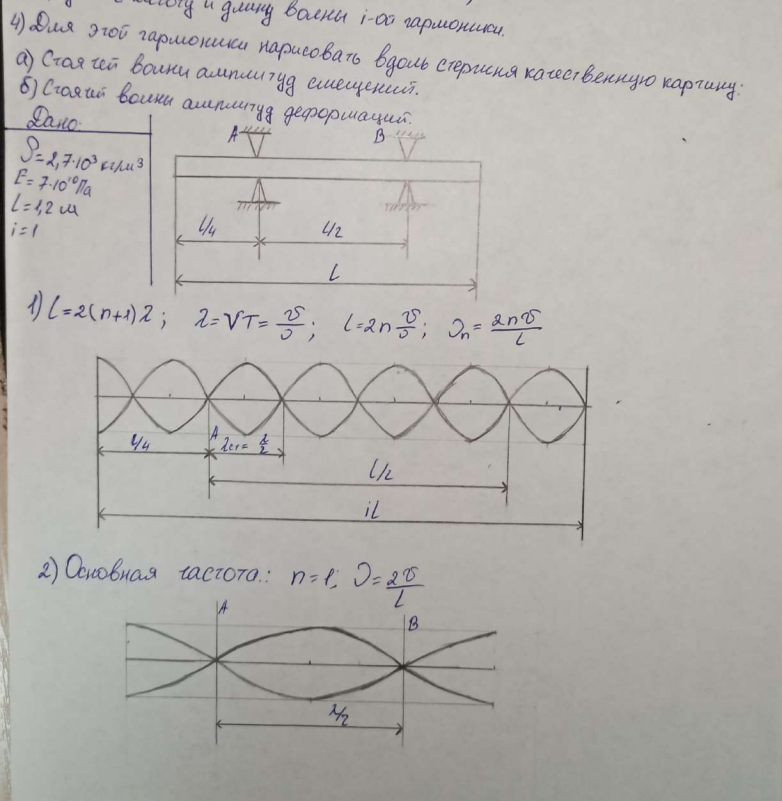 частоту и длину волны i-ой гармоники.
4) Для этой гармоники нарисовать вдоль стержня качественную картину:
а) Стоячей волны амплитуд смещений.
б) Стоячей волны амплитуд деформаций.
Дано:
ρ=2,7·10³ кг/м³
E=7·10¹⁰Па
l=1,2 м
i=1
A B
l/4 l/2
l
1) l=2(n+1)λ; λ=VT=v/ν; l=2n v/ν; νn=2nv/l
l/4 A λст=λ/2
l/2
il
2) Основная частота: n=1; ν=2v/l
A B
λ/2